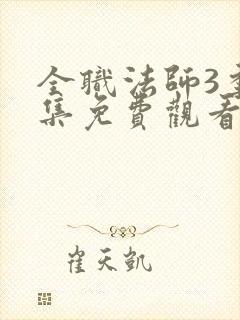 全職法師3季
集免費觀看
崔天凱